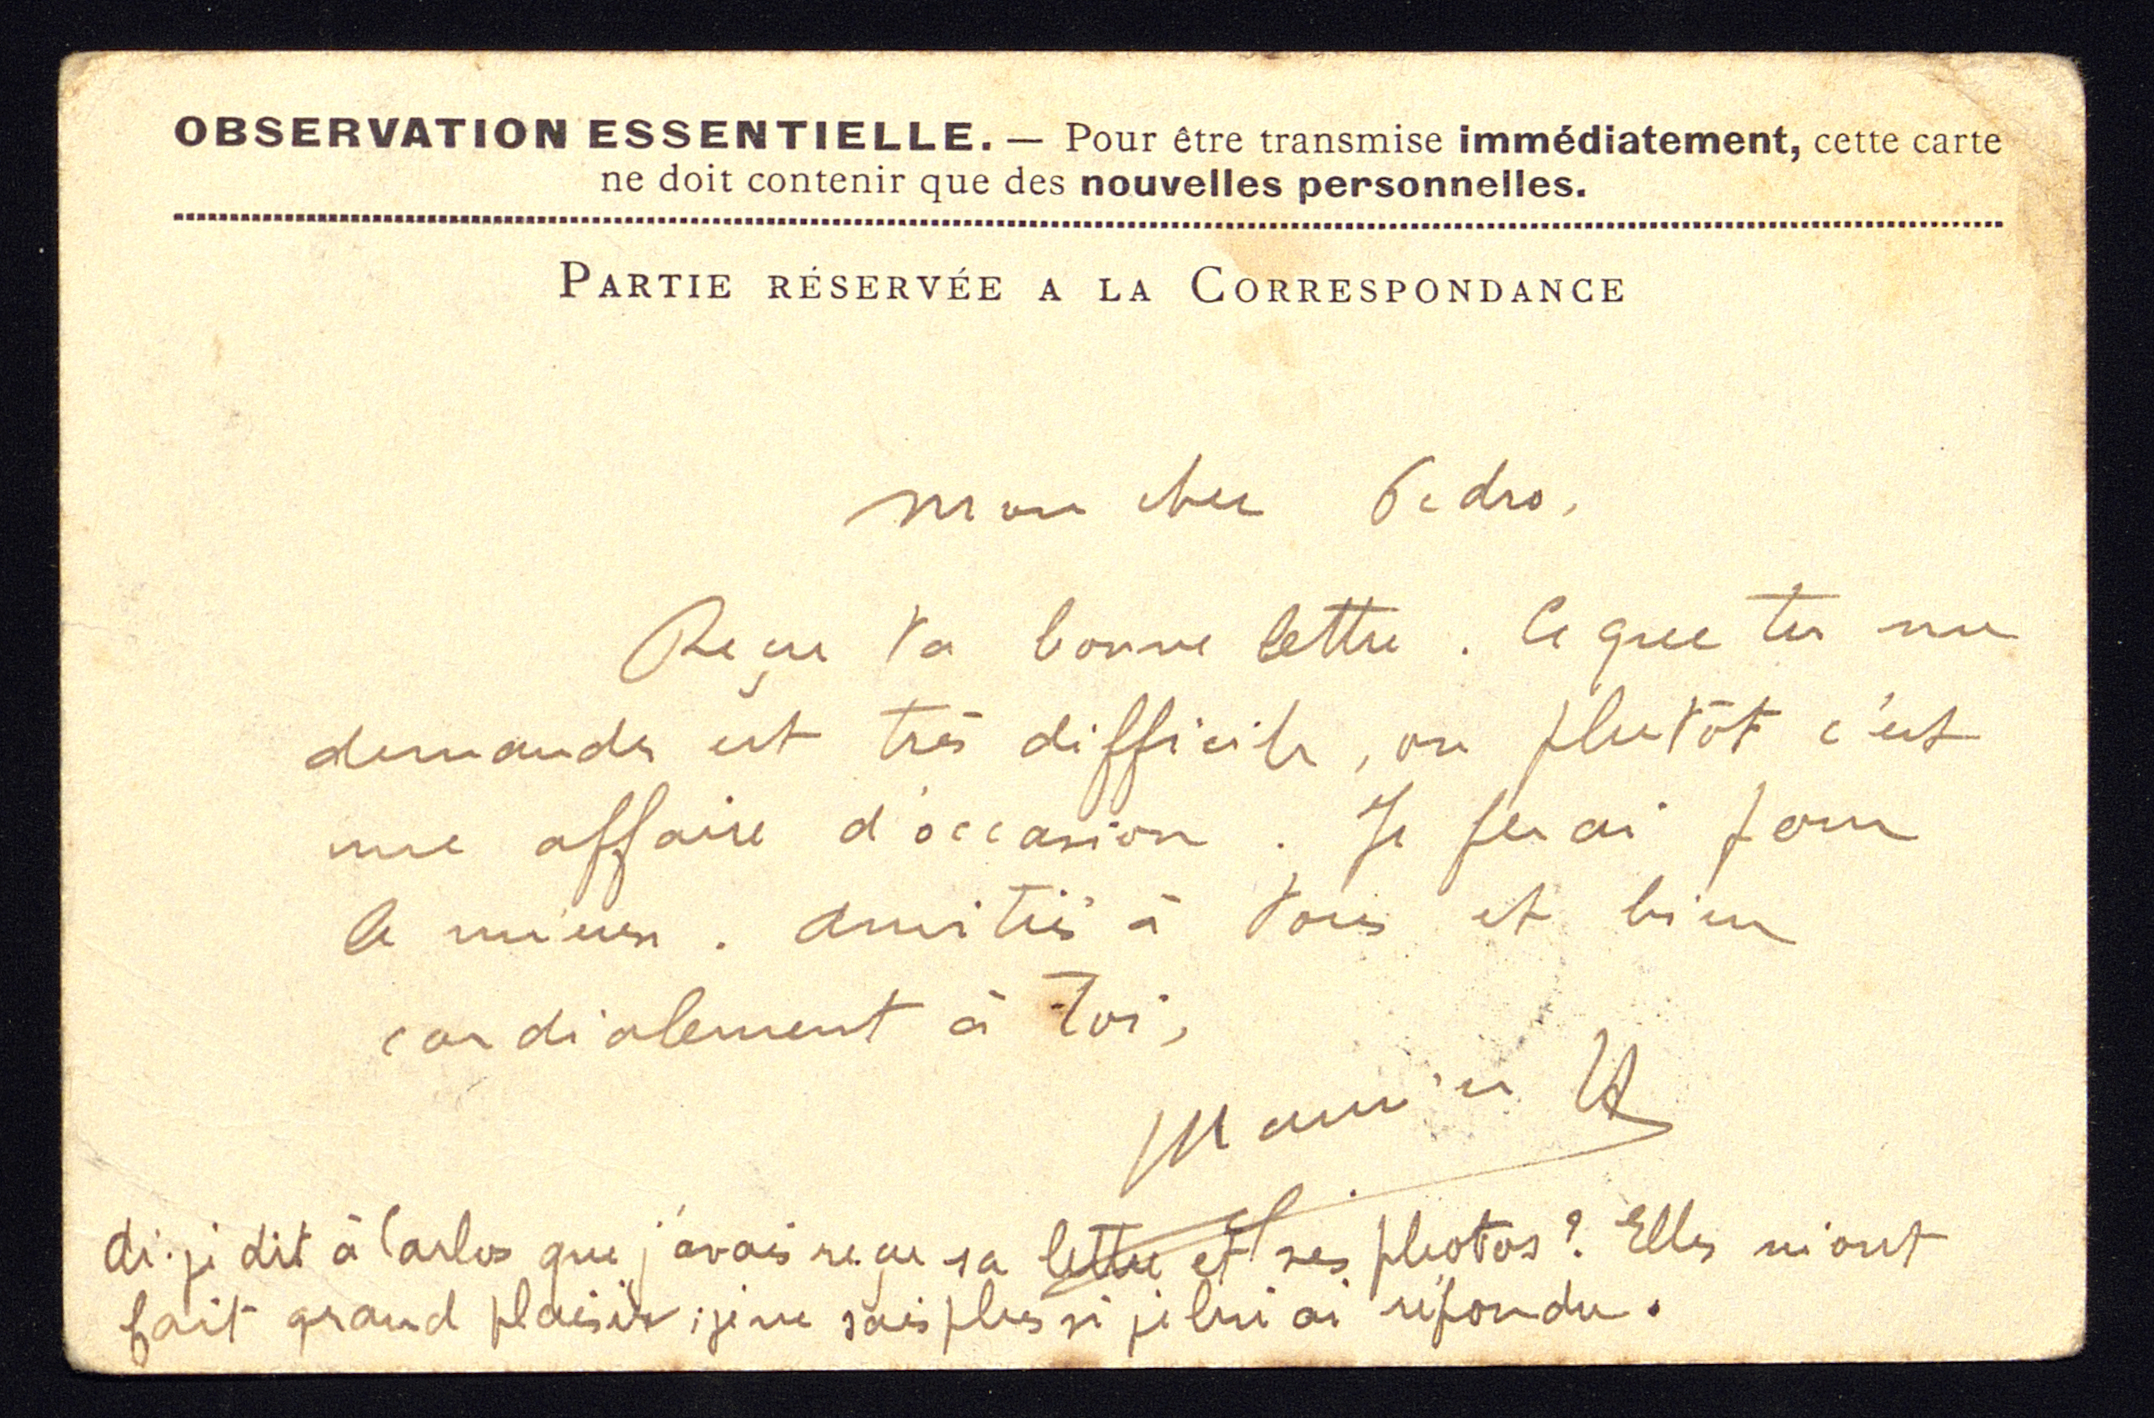 OBSERVATION ESSENTIELLE. — Pour être transmise immédiatement, cette carte
ne doit contenir que des nouvelles personnelles.
PARTIE RÉSERVÉE A LA CORRESPONDANCE
Mon cher Pedro,
Reçu ta bonne lettre. Ce que tu me
demandes est très difficile, ou plutôt c'est
une affaire d'occasion. Je ferai pour
le mieux. Amitiés à tous et bien
cordialement à toi,
Maurice
Ai-je dit à Carlos que j'avais reçu sa lettre et ses photos? Elles m'ont
fait grand plaisir; je ne sais plus si je lui ai répondu.